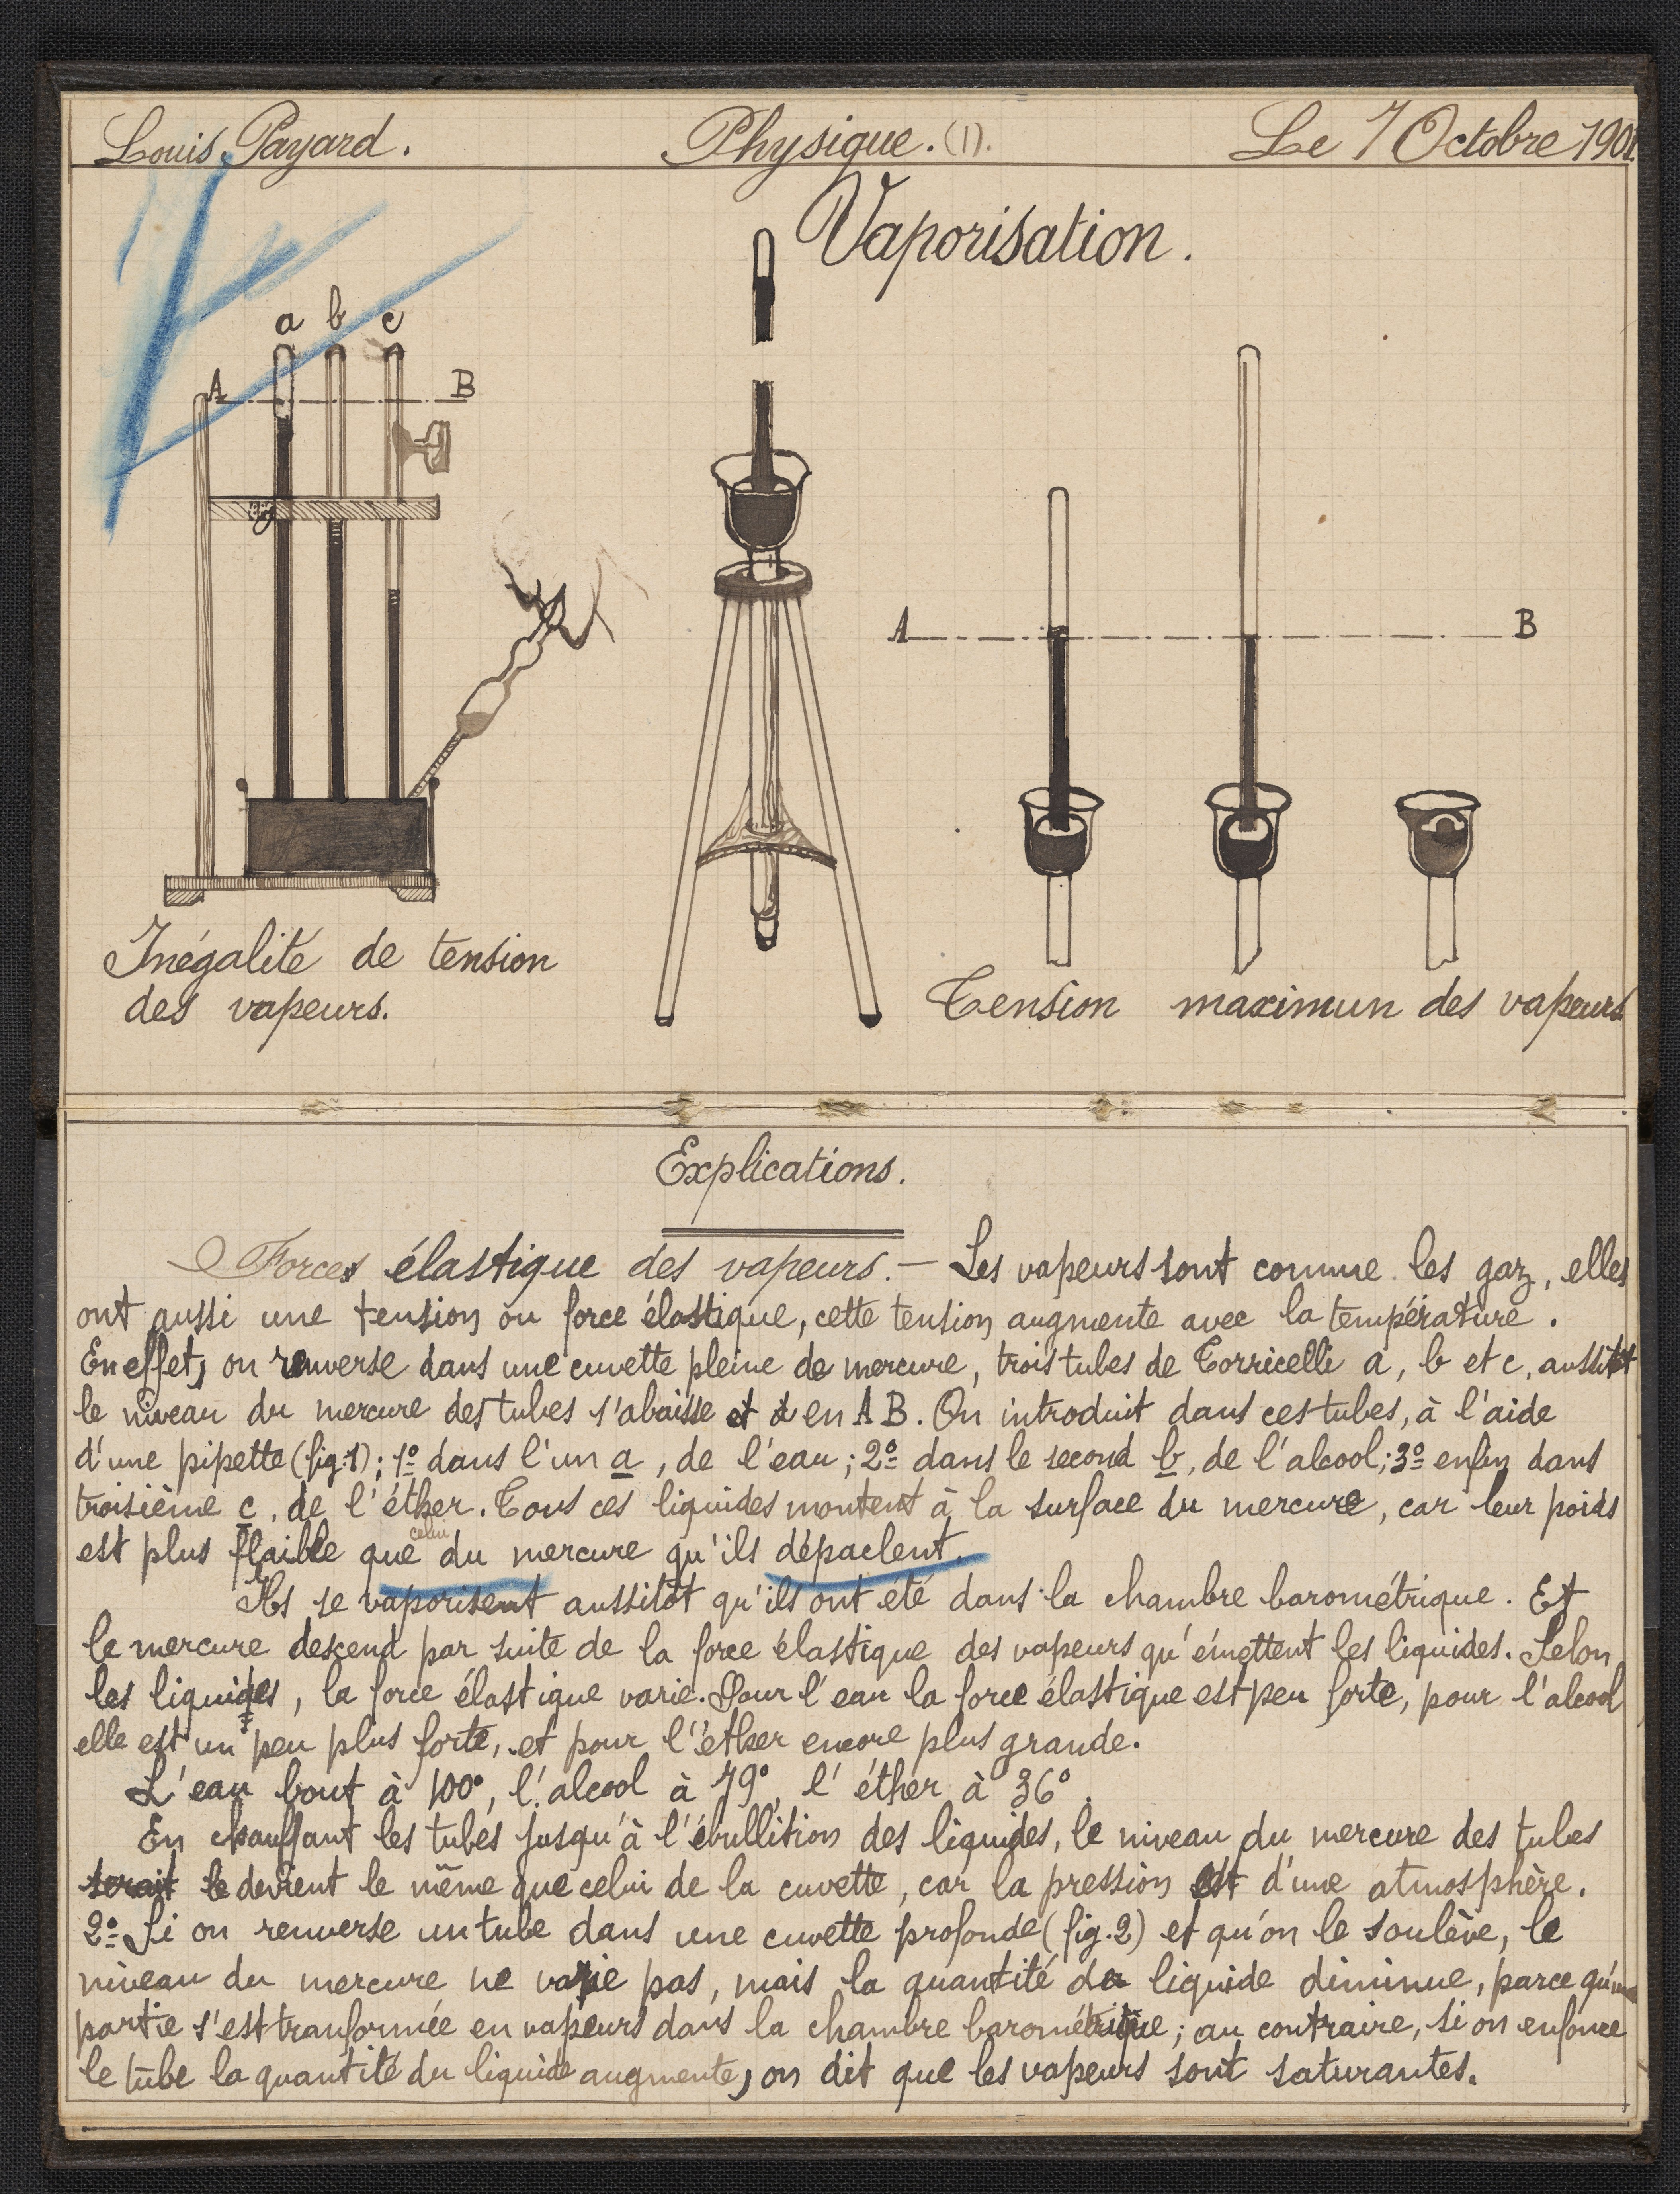 Louis Payard. Physique. (1). Le 7 Octobre 1901.
Vaporisation.
a b c
A B
A B
Inégalité de tension
des vapeurs.
Tension maximun des vapeurs
Explications.
Forces élastique des vapeurs. — Les vapeurs sont comme les gaz, elles
ont aussi une tension ou force élastique, cette tension augmente avec la température.
En effet, on renverse dans une cuvette pleine de mercure, trois tubes de Torricelli a, b et c, aussitôt
le niveau du mercure des tubes s'abaisse et en A B. On introduit dans ces tubes, à l'aide
d'une pipette (fig. 1); 1º dans l'un a, de l'eau; 2º dans le second b, de l'alcool; 3º enfin dans
troisième c, de l'éther. Tous ces liquides montent à la surface du mercure, car leur poids
est plus flaible que celui du mercure qu'ils dépaclent.
Ils se vaporisent aussitôt qu'ils ont été dans la chambre barométrique. Et
le mercure descend par suite de la force élastique des vapeurs qu'émettent les liquides. Selon
les liquides, la force élastique varie. Pour l'eau la force élastique est peu forte, pour l'alcool
elle est un peu plus forte, et pour l'éther encore plus grande.
L'eau bout à 100º, l'alcool à 79º, l'éther à 36º.
En chauffant les tubes jusqu'à l'ébullition des liquides, le niveau du mercure des tubes
serait le devient le même que celui de la cuvette, car la pression est d'une atmosphère.
2º Si on renverse un tube dans une cuvette profonde (fig. 2) et qu'on le soulève, le
niveau du mercure ne varie pas, mais la quantité du liquide diminue, parce qu'une
partie s'est tranformée en vapeurs dans la chambre barométrique; au contraire, si on enfonce
le tube la quantité du liquide augmente, on dit que les vapeurs sont saturantes.